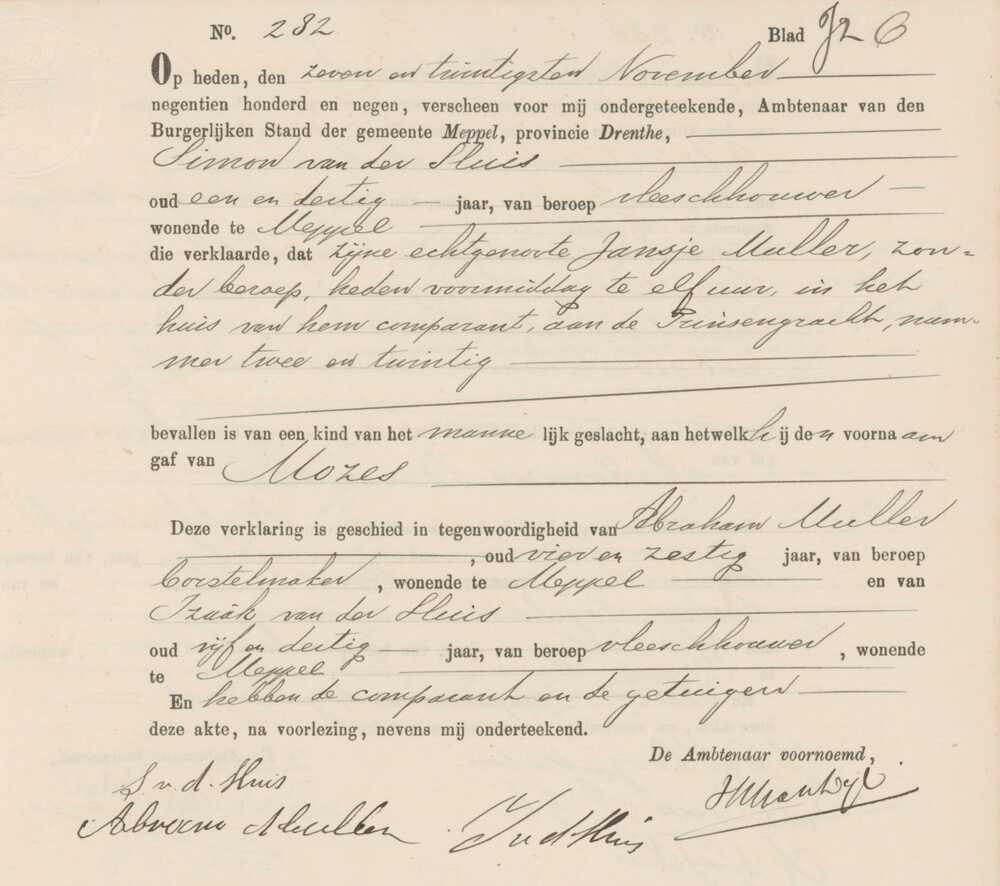 No. 232 Blad
Op heden, den zeven en twintigsten November
negentien honderd en negen, verscheen voor mij ondergeteekende, Ambtenaar van den
Burgerlijken Stand der gemeente Meppel, provincie Drenthe,
Simon van der Sluis
oud een en dertig jaar, van beroep vleeschhouwer
wonende te Meppel
die verklaarde, dat zijne echtgenoote Jansje Muller, zon-
der beroep, heden voormiddag te elf uur, in het
huis van hem comparant, aan de Prinsengracht, num-
mer twee en twintig
bevallen is van een kind van het manne lijk geslacht, aan hetwelk hij den voornaam
gaf van Mozes
Deze verklaring is geschied in tegenwoordigheid van Abraham Muller
, oud vier en zestig jaar, van beroep
borstelmaker, wonende te Meppel en van
Izaäk van der Sluis
oud vijf en dertig jaar, van beroep vleeschhouwer, wonende
te Meppel
En hebben de comparant en de getuigen
deze akte, na voorlezing, nevens mij onderteekend.
De Ambtenaar voornoemd,
S. v. d. Sluis
Abraam Muller I v d Sluis